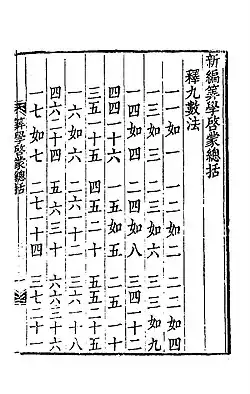 新編筭學啓蒙總括
釋九數法
一一如一 一二如二 二二如四
一三如三 二三如六 三三如九
一四如四 二四如八 三四一十二
四四一十六 一五如五 二五一十
三五一十五 四五二十 五五二十五
一六如六 二六一十二 三六一十八
四六二十四 五六三十 六六三十六
一七如七 二七一十四 三七二十一
筭學啓蒙總括